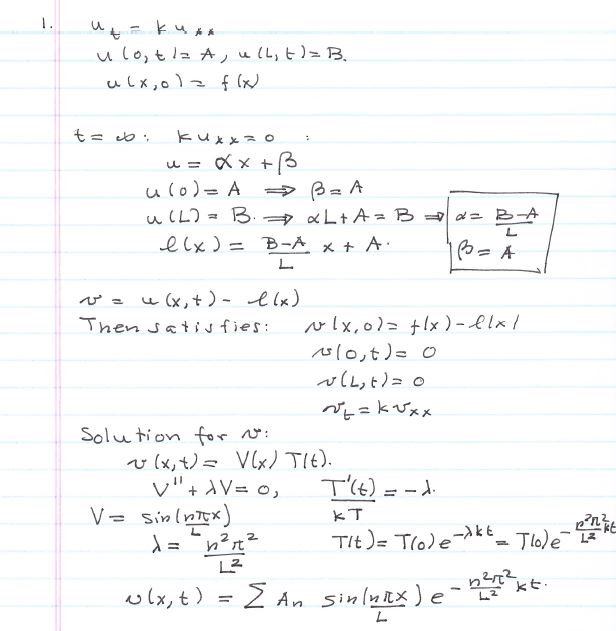 1. u_t = k u_xx
u(0,t) = A, u(L,t) = B.
u(x,0) = f(x)
t = ∞: k u_xx = 0 :
u = αx + β
u(0) = A ⟹ β = A
u(L) = B. ⟹ αL + A = B ⟹ α = (B-A)/L
β = A
ℓ(x) = (B-A)/L x + A.
v = u(x,t) - ℓ(x)
Then satisfies: v(x,0) = f(x) - ℓ(x)
v(0,t) = 0
v(L,t) = 0
v_t = k v_xx
Solution for v:
v(x,t) = V(x) T(t).
V'' + λV = 0, T'(t)/(kT) = -λ.
V = sin(nπx/L)
λ = n²π²/L² T(t) = T(0) e^(-λkt) = T(0) e^(-n²π²/L² kt)
v(x,t) = Σ An sin(nπx/L) e^(-n²π²/L² kt).